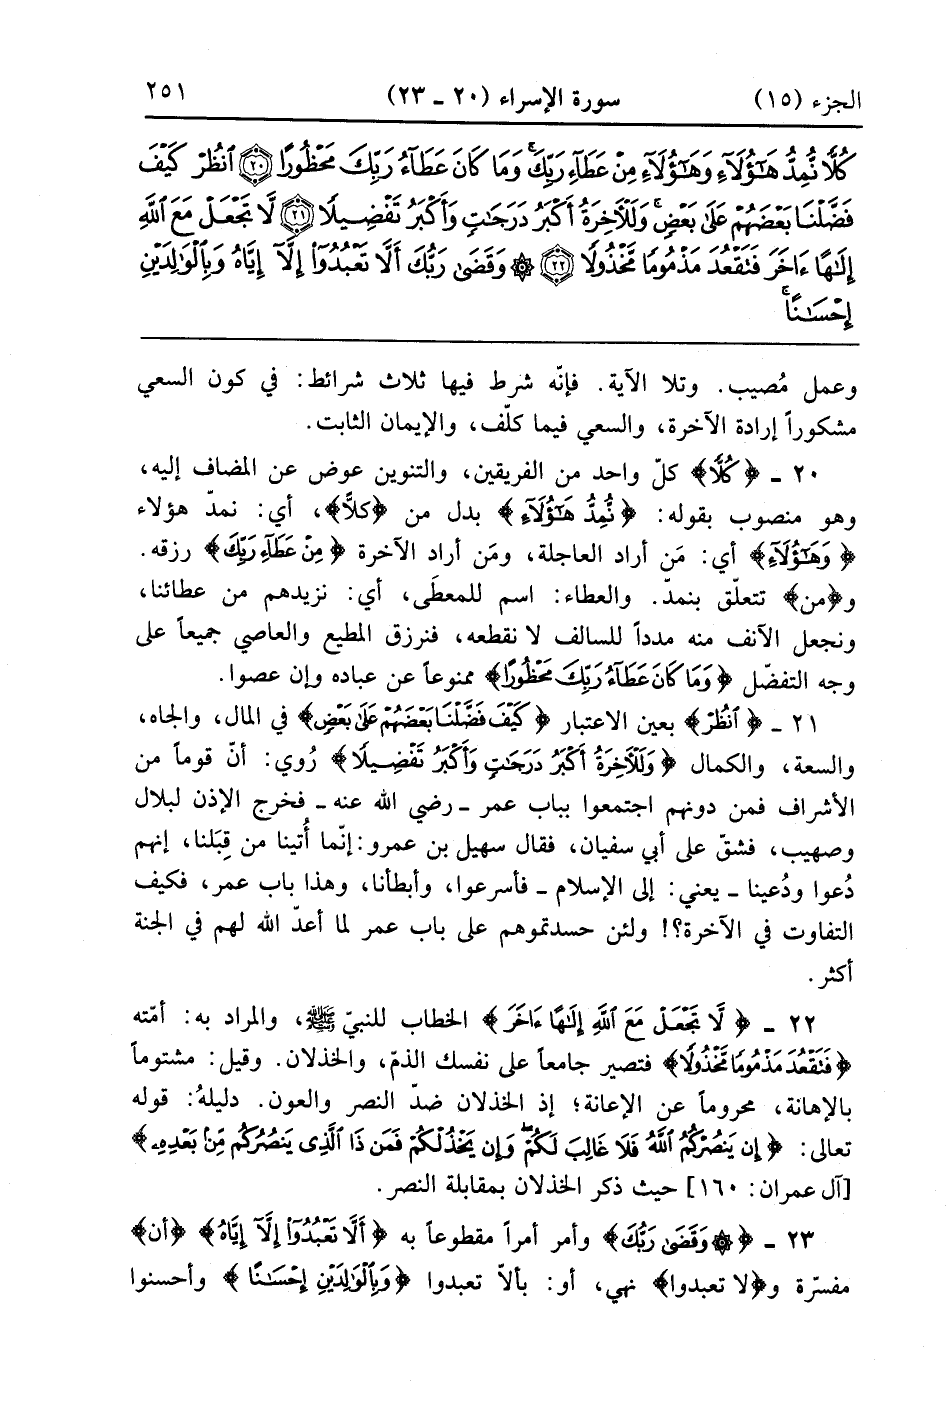 الجزء (١٥) سورة الإسراء (٢٠ ـ ٢٣) ٢٥١
كُلًّا نُّمِدُّ هَـٰٓؤُلَآءِ وَهَـٰٓؤُلَآءِ مِنْ عَطَآءِ رَبِّكَ ۚ وَمَا كَانَ عَطَآءُ رَبِّكَ مَحْظُورًا ﴿٢٠﴾ ٱنظُرْ كَيْفَ
فَضَّلْنَا بَعْضَهُمْ عَلَىٰ بَعْضٍ ۚ وَلَلْـَٔاخِرَةُ أَكْبَرُ دَرَجَـٰتٍ وَأَكْبَرُ تَفْضِيلًا ﴿٢١﴾ لَّا تَجْعَلْ مَعَ ٱللَّهِ
إِلَـٰهًا ءَاخَرَ فَتَقْعُدَ مَذْمُومًا مَّخْذُولًا ﴿٢٢﴾ ۞ وَقَضَىٰ رَبُّكَ أَلَّا تَعْبُدُوٓا۟ إِلَّآ إِيَّاهُ وَبِٱلْوَٰلِدَيْنِ
إِحْسَـٰنًا ۚ
وعمل مُصيب. وتلا الآية. فإنّه شرط فيها ثلاث شرائط: في كون السعي
مشكوراً إرادة الآخرة، والسعي فيما كلّف، والإيمان الثابت.
٢٠ ـ ﴿كُلًّا﴾ كلّ واحد من الفريقين، والتنوين عوض عن المضاف إليه،
وهو منصوب بقوله: ﴿نُّمِدُّ هَـٰٓؤُلَآءِ﴾ بدل من ﴿كلاًّ﴾، أي: نمدّ هؤلاء
﴿وَهَـٰٓؤُلَآءِ﴾ أي: مَن أراد العاجلة، ومَن أراد الآخرة ﴿مِنْ عَطَآءِ رَبِّكَ﴾ رزقه.
و﴿من﴾ تتعلّق بنمدّ. والعطاء: اسم للمعطَى، أي: نزيدهم من عطائنا،
ونجعل الآنف منه مدداً للسالف لا نقطعه، فنرزق المطيع والعاصي جميعاً على
وجه التفضّل ﴿وَمَا كَانَ عَطَآءُ رَبِّكَ مَحْظُورًا﴾ ممنوعاً عن عباده وإن عصوا.
٢١ ـ ﴿ٱنظُرْ﴾ بعين الاعتبار ﴿كَيْفَ فَضَّلْنَا بَعْضَهُمْ عَلَىٰ بَعْضٍ﴾ في المال، والجاه،
والسعة، والكمال ﴿وَلَلْـَٔاخِرَةُ أَكْبَرُ دَرَجَـٰتٍ وَأَكْبَرُ تَفْضِيلًا﴾ رُوي: أنّ قوماً من
الأشراف فمن دونهم اجتمعوا بباب عمر ـ رضي الله عنه ـ فخرج الإذن لبلال
وصهيب، فشقّ على أبي سفيان، فقال سهيل بن عمرو: إنّما أُتينا من قِبَلنا، إنهم
دُعوا ودُعينا ـ يعني: إلى الإسلام ـ فأسرعوا، وأبطأنا، وهذا باب عمر، فكيف
التفاوت في الآخرة؟! ولئن حسدتموهم على باب عمر لما أعدّ الله لهم في الجنة
أكثر.
٢٢ ـ ﴿لَّا تَجْعَلْ مَعَ ٱللَّهِ إِلَـٰهًا ءَاخَرَ﴾ الخطاب للنبيّ ﷺ، والمراد به: أمّته
﴿فَتَقْعُدَ مَذْمُومًا مَّخْذُولًا﴾ فتصير جامعاً على نفسك الذمّ، والخذلان. وقيل: مشتوماً
بالإهانة، محروماً عن الإعانة؛ إذ الخذلان ضدّ النصر والعون. دليلهُ: قوله
تعالى: ﴿إِن يَنصُرْكُمُ ٱللَّهُ فَلَا غَالِبَ لَكُمْ ۖ وَإِن يَخْذُلْكُمْ فَمَن ذَا ٱلَّذِى يَنصُرُكُم مِّنۢ بَعْدِهِۦ﴾
[آل عمران: ١٦٠] حيث ذكر الخذلان بمقابلة النصر.
٢٣ ـ ﴿۞ وَقَضَىٰ رَبُّكَ﴾ وأمر أمراً مقطوعاً به ﴿أَلَّا تَعْبُدُوٓا۟ إِلَّآ إِيَّاهُ﴾ ﴿أن﴾
مفسّرة و﴿لا تعبدوا﴾ نهي، أو: بألاّ تعبدوا ﴿وَبِٱلْوَٰلِدَيْنِ إِحْسَـٰنًا﴾ وأحسنوا